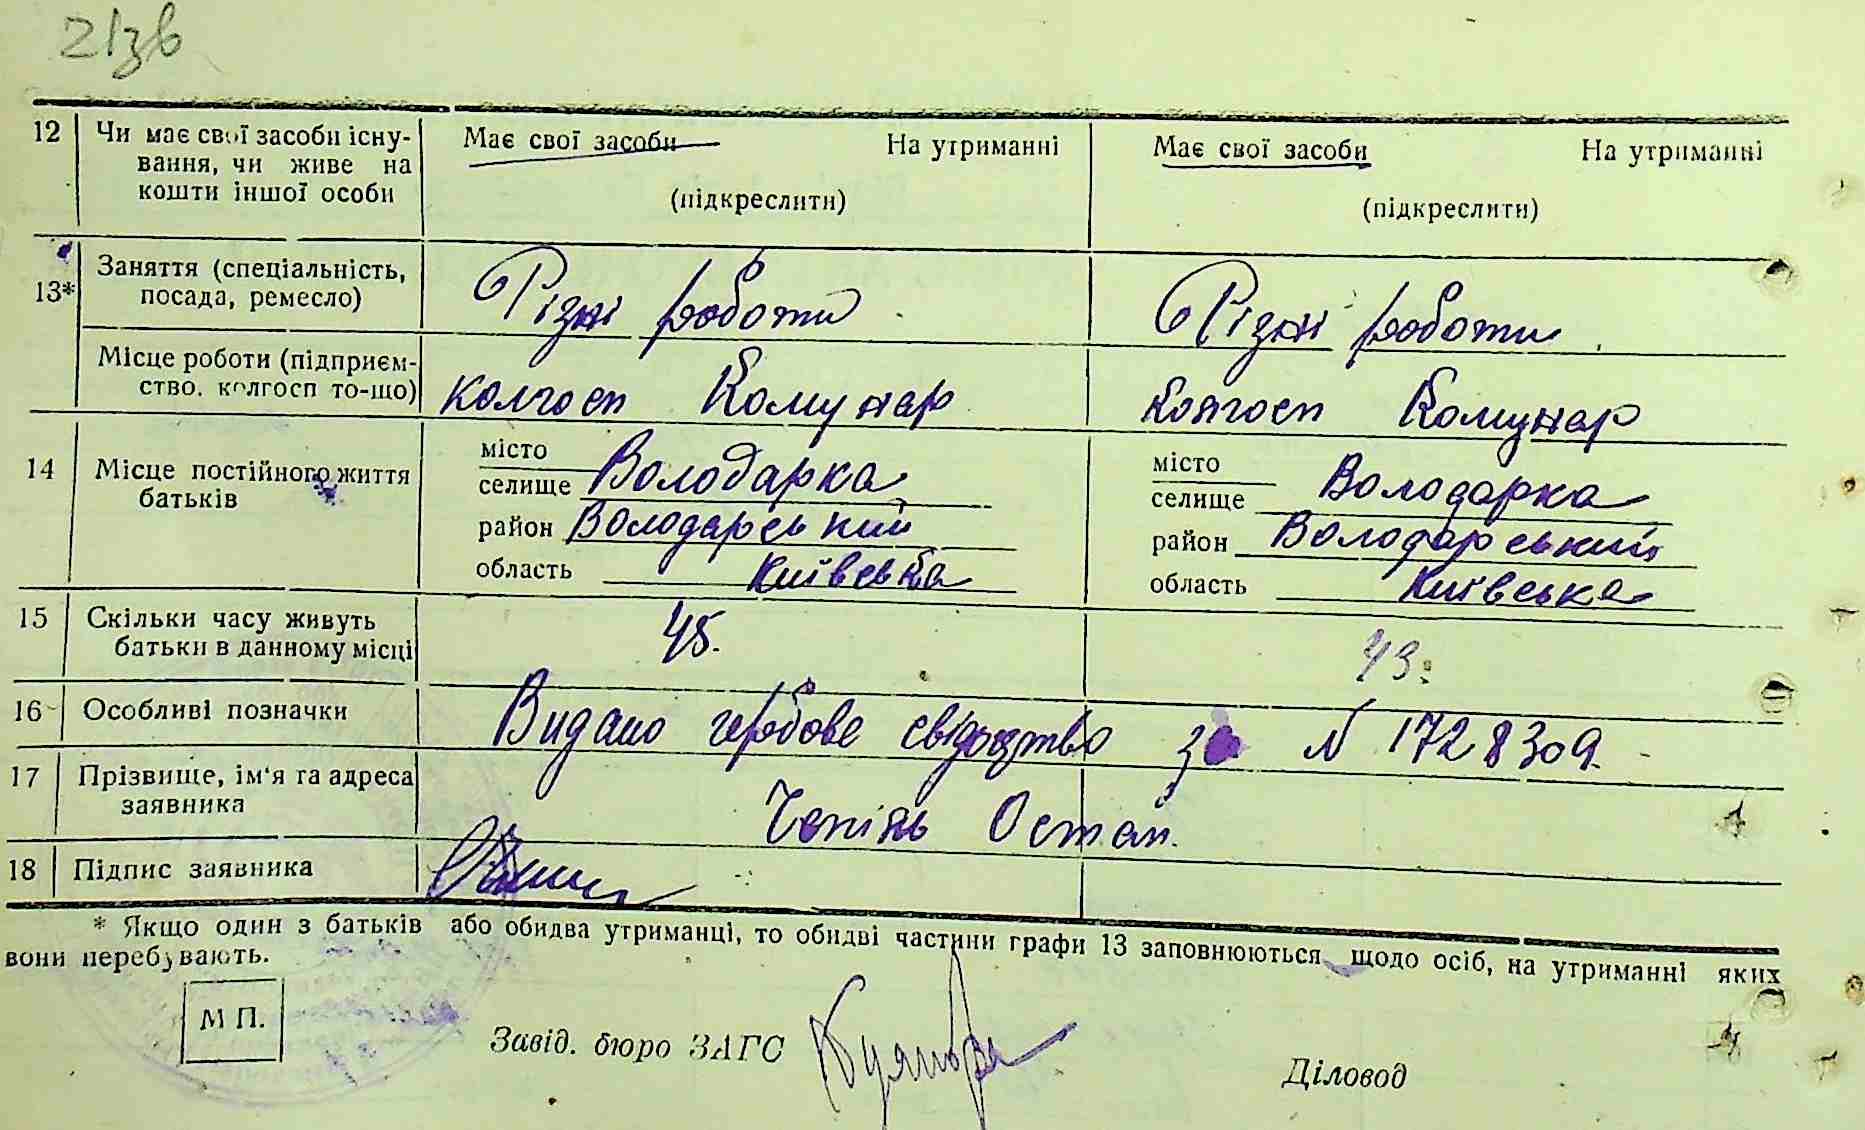 21зв
12 Чи має свої засоби існу- Має свої засоби На утриманні Має свої засоби На утриманні
вання, чи живе на
кошти іншої особи (підкреслити) (підкреслити)
13* Заняття (спеціальність, Різні роботи Різні роботи
посада, ремесло)
Місце роботи (підприєм- колгосп Комунар колгосп Комунар
ство, колгосп то-що)
14 Місце постійного життя місто Володарка місто Володарка
батьків селище селище
район Володарський район Володарський
область Київська область Київська
15 Скільки часу живуть 45. 43.
батьки в данному місці
16 Особливі позначки Видано гербове свідоцтво за N 1728309.
17 Прізвище, ім'я та адреса Чепінь Остап.
заявника
18 Підпис заявника
* Якщо один з батьків або обидва утриманці, то обидві частини графи 13 заповнюються щодо осіб, на утриманні яких
вони перебувають.
М П.
Завід. бюро ЗАГС Діловод